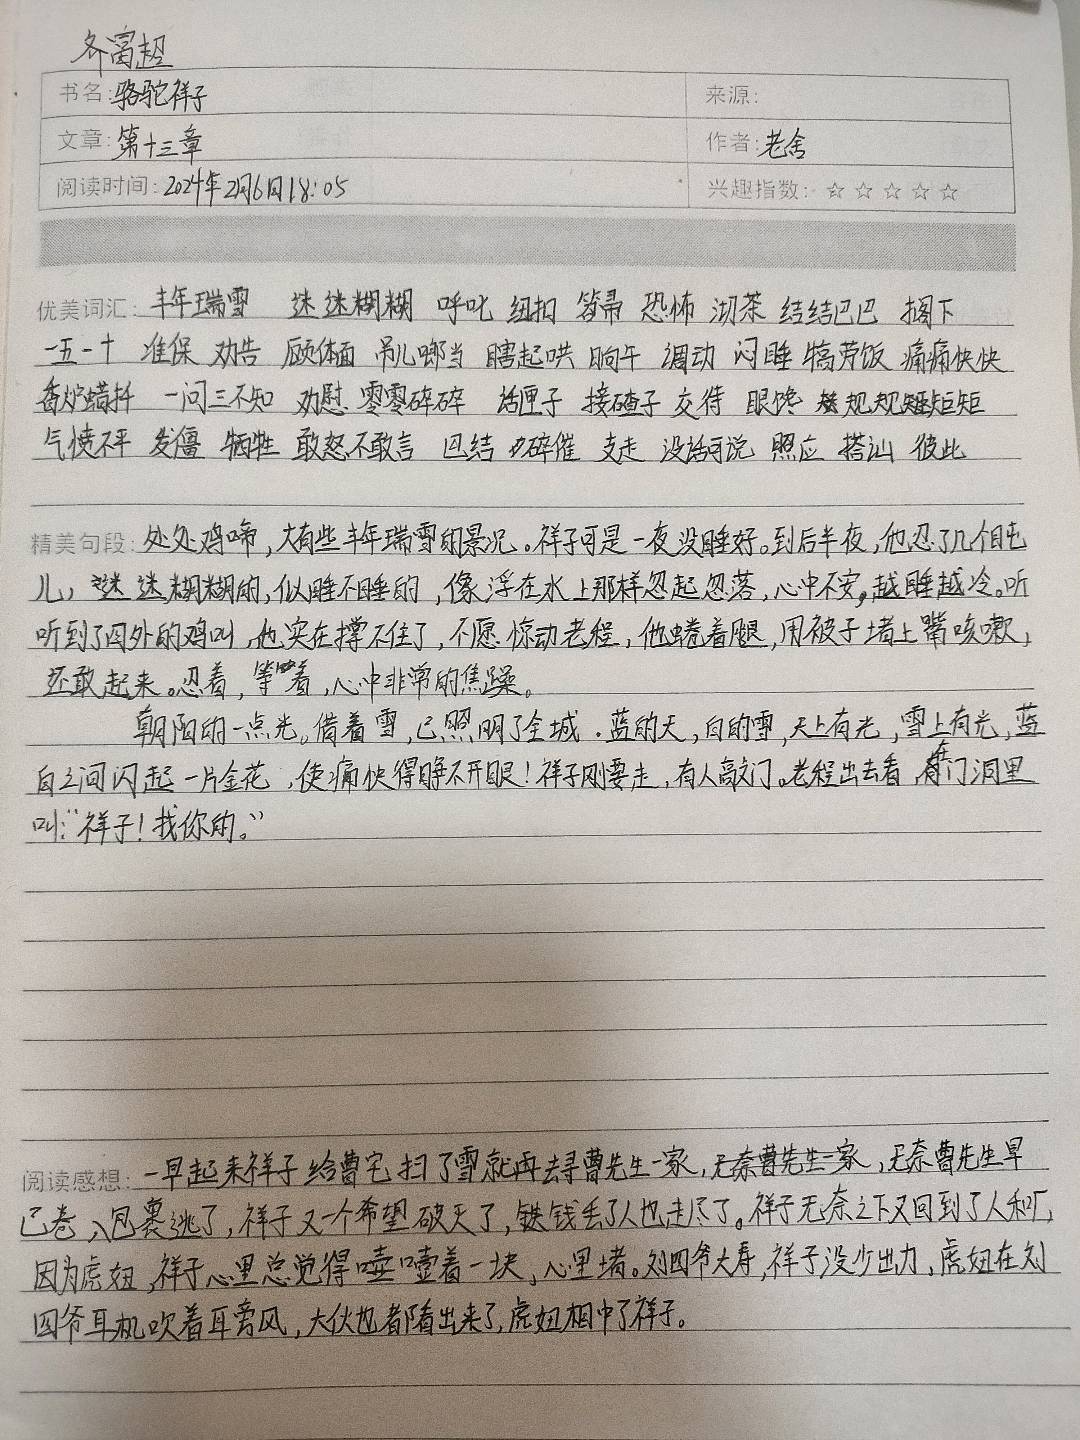 齐富超
书名:骆驼祥子 来源:
文章:第十三章 作者:老舍
阅读时间:2024年2月6日18:05 兴趣指数:☆☆☆☆☆
优美词汇:丰年瑞雪 迷迷糊糊 呼叱 纽扣 笤帚 恐怖 沏茶 结结巴巴 搁下
一五一十 准保 劝告 顾体面 吊儿啷当 瞎起哄 晌午 调动 闷睡 犒劳饭 痛痛快快
香炉蜡扦 一问三不知 劝慰 零零碎碎 话匣子 接碴子 交待 眼馋 规规矩矩
气愤不平 发僵 牺牲 敢怒不敢言 巴结 碎催 支走 没话可说 照应 搭讪 彼此
精美句段:处处鸡啼,大有些丰年瑞雪的景况。祥子可是一夜没睡好。到后半夜,他忍了几个盹
儿,迷迷糊糊的,似睡不睡的,像浮在水上那样忽起忽落,心中不安,越睡越冷。听
听到了四外的鸡叫,他实在撑不住了,不愿惊动老程,他蜷着腿,用被子堵上嘴咳嗽,
还敢起来。忍着,等着,心中非常的焦躁。
朝阳的一点光。借着雪,已照明了全城.蓝的天,白的雪,天上有光,雪上有光,蓝
白之间闪起一片金花,使痛快得睁不开眼!祥子刚要走,有人敲门。老程出去看,在门洞里
叫:“祥子!找你的。”
阅读感想:一早起来祥子给曹宅扫了雪就再去寻曹先生一家,无奈曹先生一家,无奈曹先生早
已卷入包裹逃了,祥子又一个希望破灭了,铁钱丢了人也走尽了。祥子无奈之下又回到了人和厂,
因为虎妞,祥子心里总觉得噎噎着一块,心里堵。刘四爷大寿,祥子没少出力,虎妞在刘
四爷耳机吹着耳旁风,大伙也都看出来了,虎妞相中了祥子。